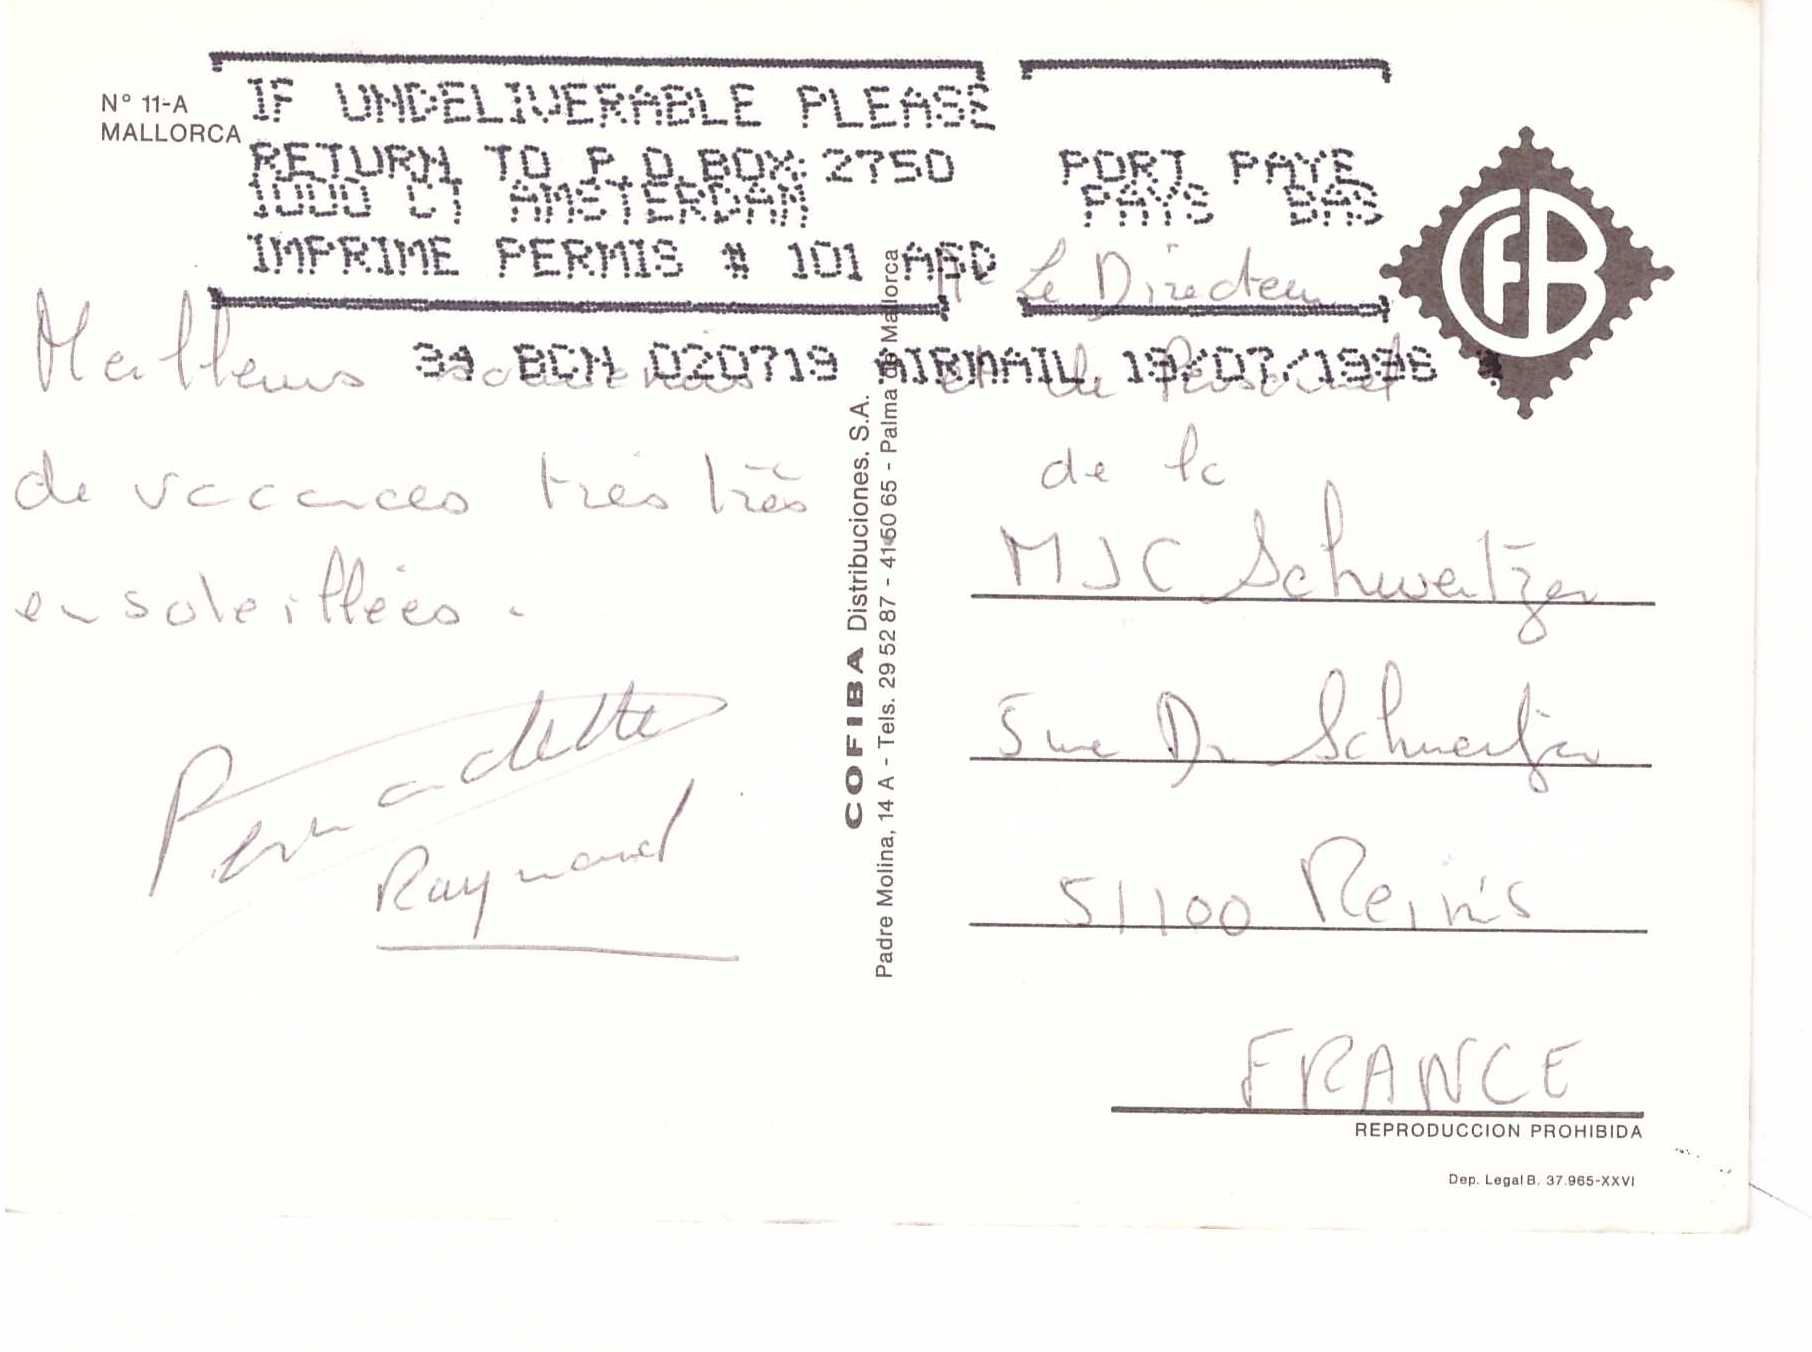 N° 11-A
MALLORCA
IF UNDELIVERABLE PLEASE
RETURN TO P.O.BOX: 2750
1000 CT AMSTERDAM
IMPRIME PERMIS # 101 ASD
PORT PAYE
PAYS BAS
34 BCN 020719 AIRMAIL 19/07/1996
Meilleurs souvenirs
de vacances très très
ensoleillées.
Bernadette
Raymond
COFIBA Distribuciones, S.A.
Padre Molina, 14 A - Tels. 29 52 87 - 41 60 65 - Palma de Mallorca
CFB
Le Directeur
et le Personnel
de la
MJC Schweitzer
5 rue Dr Schweitzer
51100 Reims
FRANCE
REPRODUCCION PROHIBIDA
Dep. Legal B. 37.965-XXVI